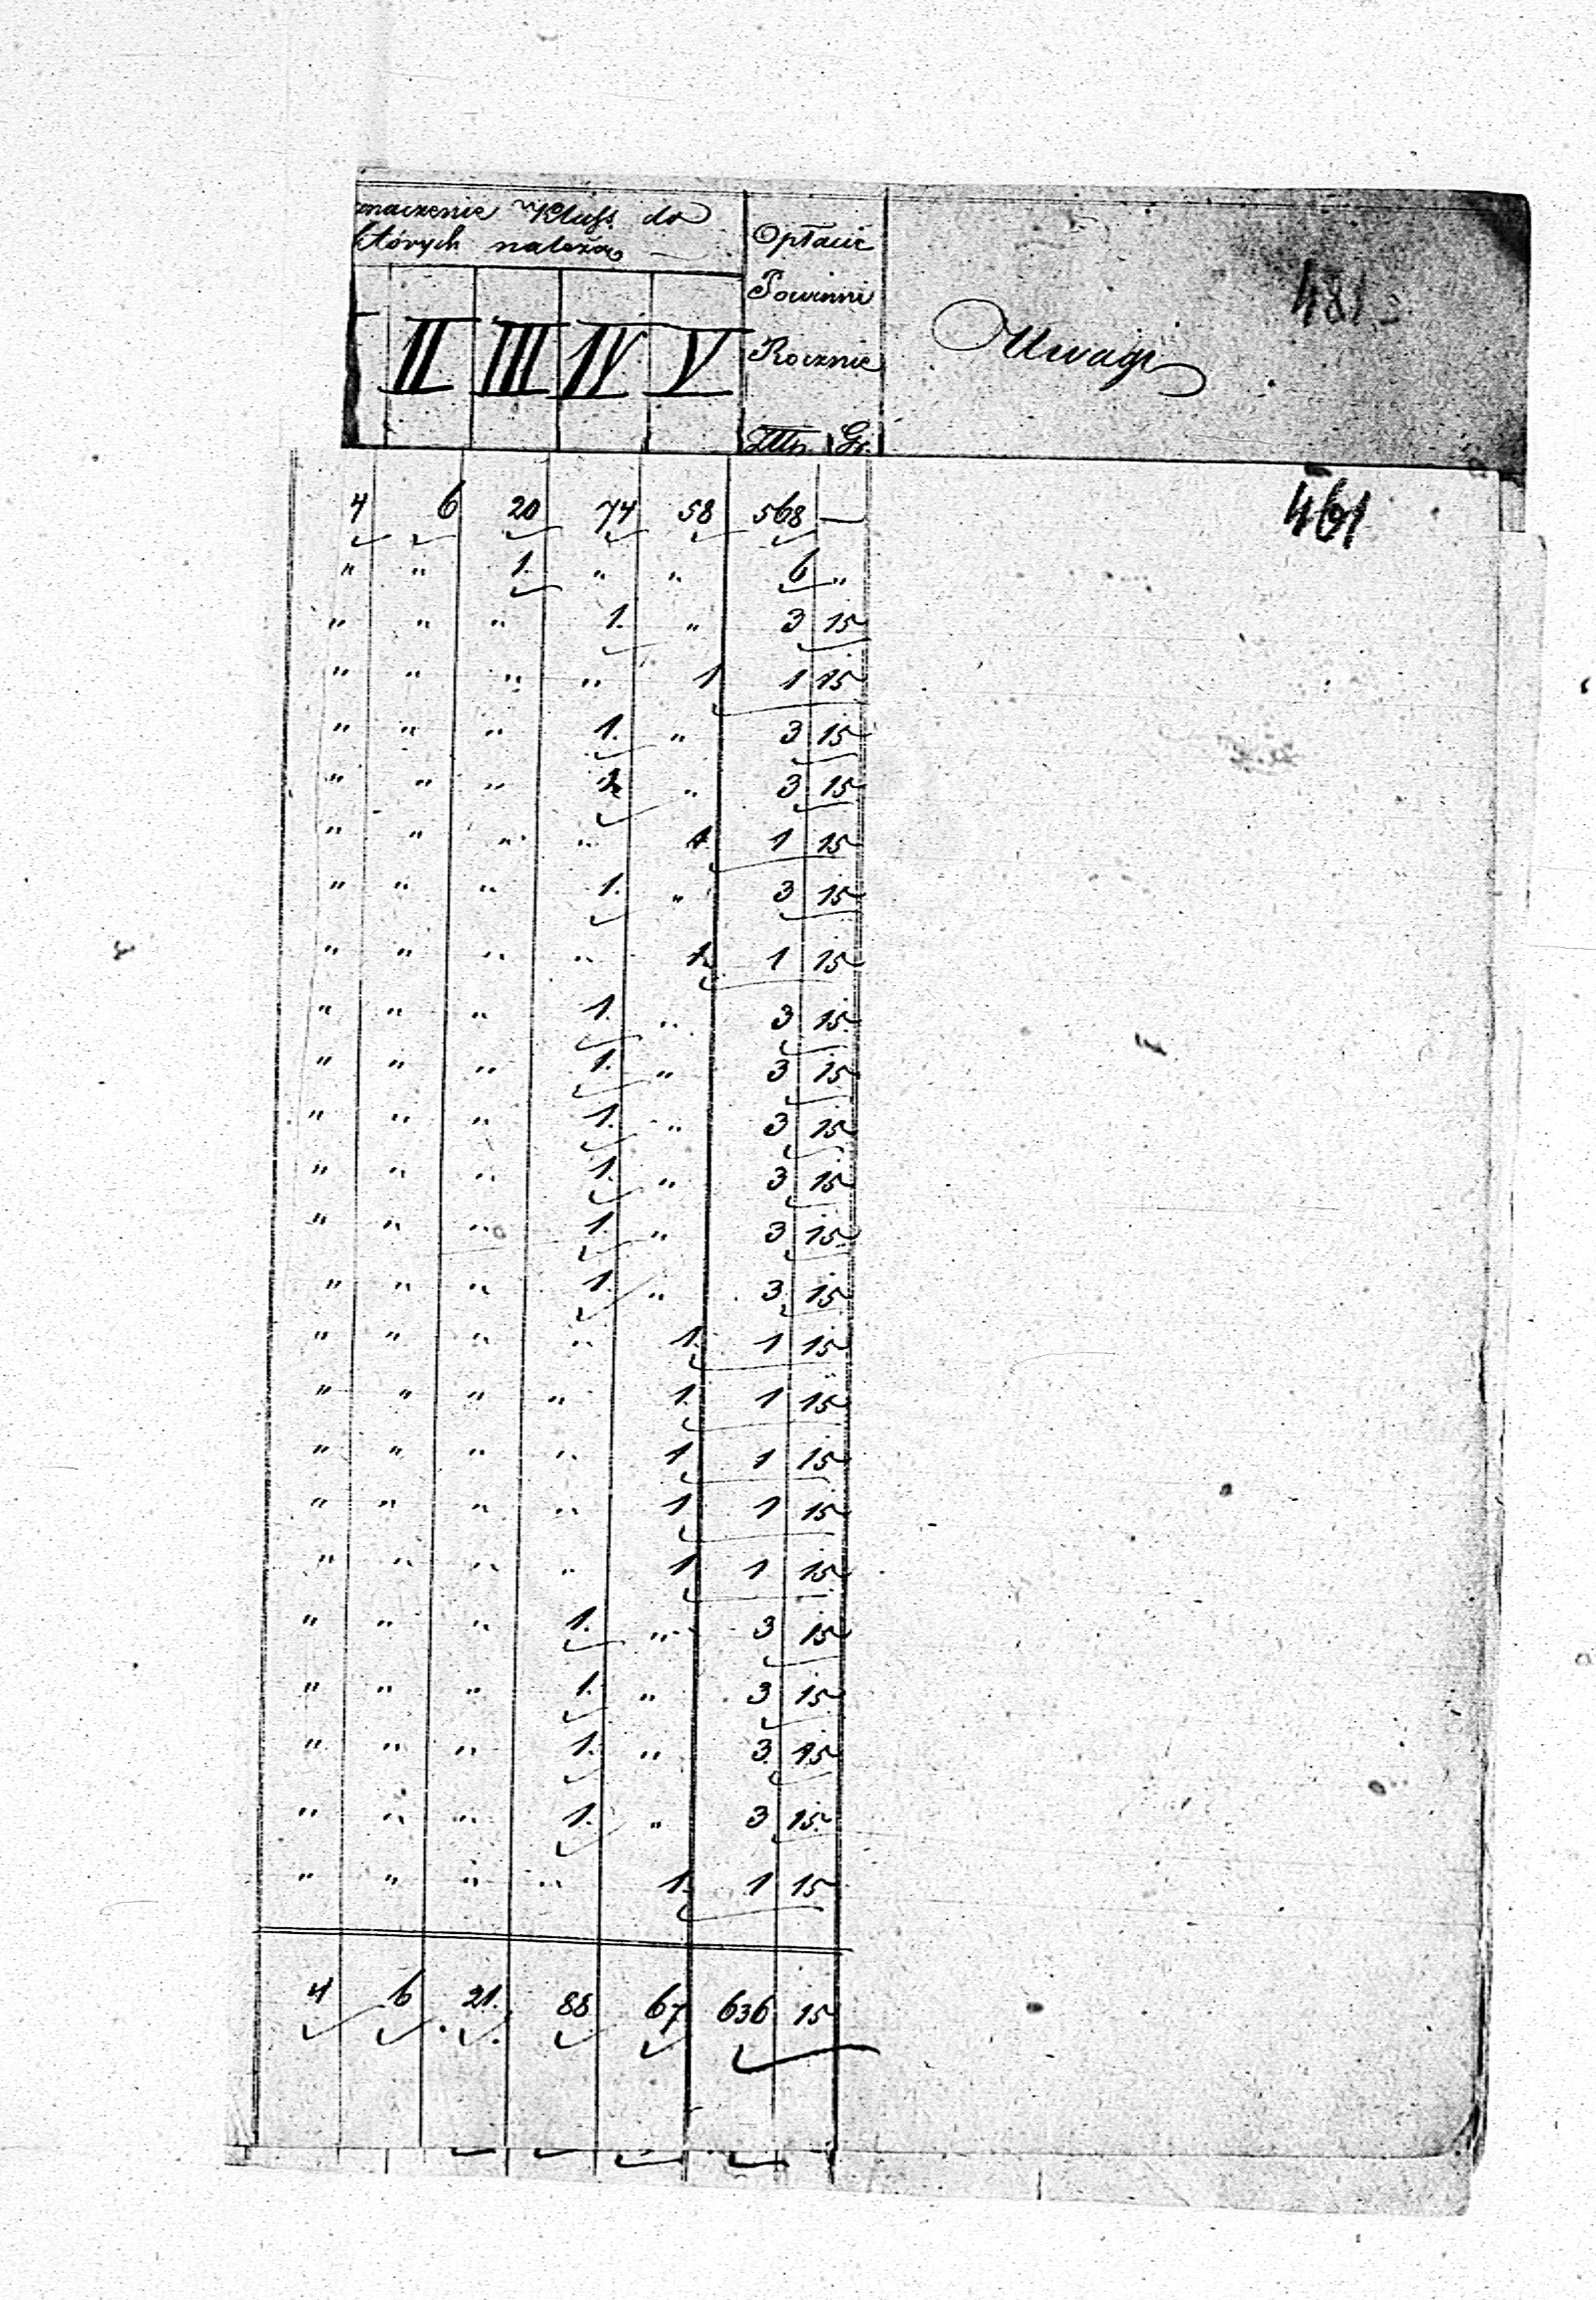 naczenie Klass. do
których należą
Opłacić
Powinni
Rocznie
Uwagi
481
II III IV V
Złtp. Gr.
461
4 6 20 74 58 568 —
" " 1. " " 6 "
" " " 1. " 3 15
" " " " 1 1 15
" " " 1. " 3 15
" " " 1. " 3 15
" " " " 1. 1 15
" " " 1. " 3 15
" " " " 1. 1 15
" " " 1. " 3 15
" " " 1. " 3 15
" " " 1. " 3 15
" " " 1. " 3 15
" " " 1. " 3 15
" " " 1. " 3 15
" " " " 1. 1 15
" " " " 1. 1 15
" " " " 1 1 15
" " " " 1 1 15
" " " " 1 1 15
" " " 1. " 3 15
" " " 1. " 3 15
" " " 1. " 3 15
" " " 1. " 3 15
" " " " 1. 1 15
4 6 21. 88 67 636 15